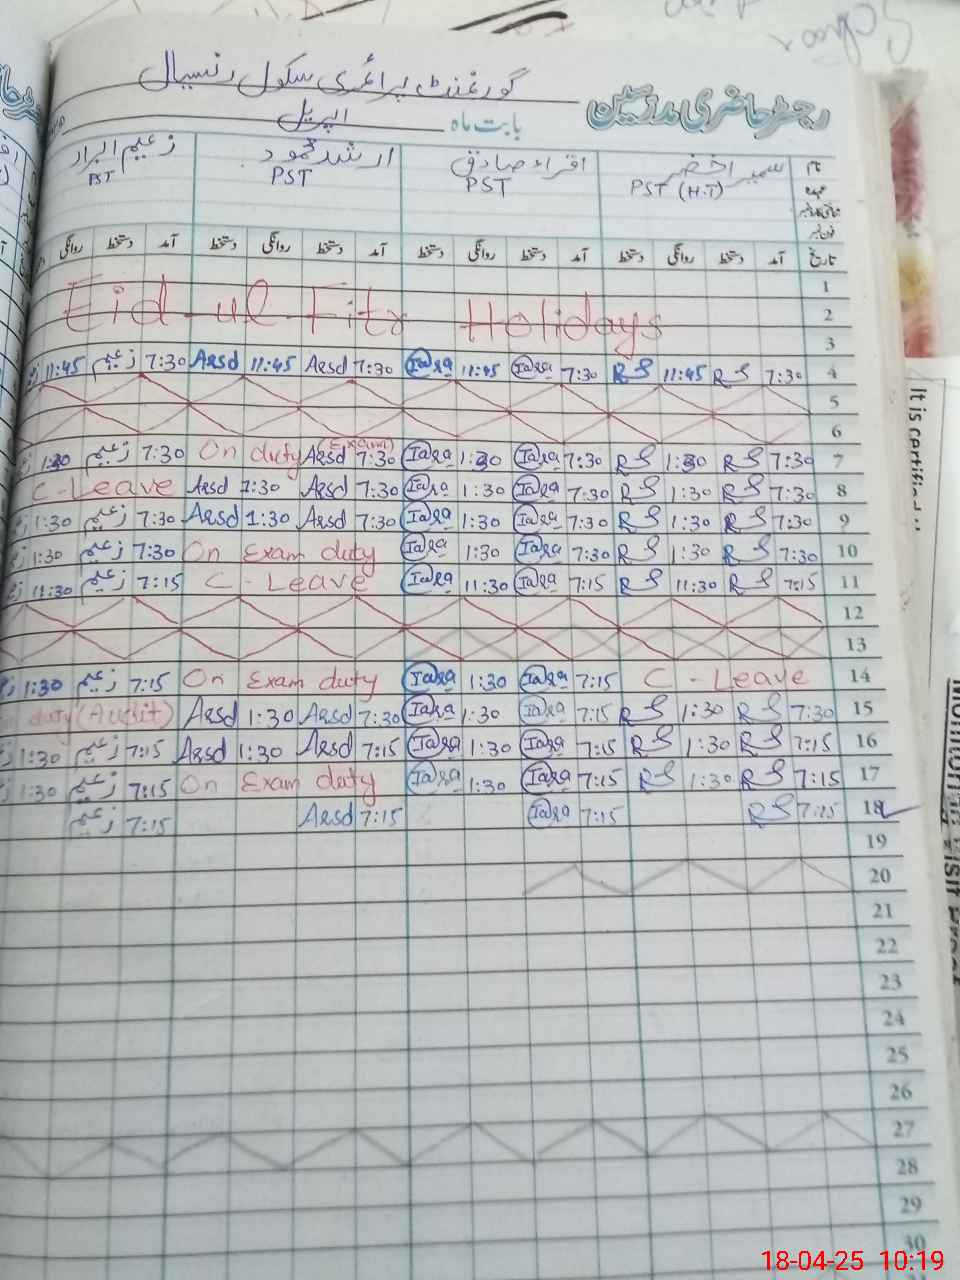 رجسٹر حاضری مدرسین گورنمنٹ پرائمری سکول
بابت ماہ اپریل
نام سمیرا خضر اقراء صادق ارشد محمود زعیم
عہدہ PST (H.T) PST PST PST
تاریخ آمد دستخط روانگی دستخط آمد دستخط روانگی دستخط آمد دستخط روانگی دستخط آمد دستخط روانگی
1
Eid-ul-Fitr Holidays 2
3
11:45 زعیم 7:30 Arsd 11:45 Arsd 7:30 Iqra 11:45 Iqra 7:30 RS 11:45 RS 7:30 4
5
6
1:30 زعیم 7:30 On duty (Exam) Arsd 7:30 Iqra 1:30 Iqra 7:30 RS 1:30 RS 7:30 7
C-Leave Arsd 1:30 Arsd 7:30 Iqra 1:30 Iqra 7:30 RS 1:30 RS 7:30 8
1:30 زعیم 7:30 Arsd 1:30 Arsd 7:30 Iqra 1:30 Iqra 7:30 RS 1:30 RS 7:30 9
1:30 زعیم 7:30 On Exam duty Iqra 1:30 Iqra 7:30 RS 1:30 RS 7:30 10
11:30 زعیم 7:15 C-Leave Iqra 11:30 Iqra 7:15 RS 11:30 RS 7:15 11
12
13
1:30 زعیم 7:15 On Exam duty Iqra 1:30 Iqra 7:15 C-Leave 14
duty (Audit) Arsd 1:30 Arsd 7:30 Iqra 1:30 Iqra 7:15 RS 1:30 RS 7:30 15
1:30 زعیم 7:15 Arsd 1:30 Arsd 7:15 Iqra 1:30 Iqra 7:15 RS 1:30 RS 7:15 16
1:30 زعیم 7:15 On Exam duty Iqra 1:30 Iqra 7:15 RS 1:30 RS 7:15 17
زعیم 7:15 Arsd 7:15 Iqra 7:15 RS 7:15 18
19
20
21
22
23
24
25
26
27
28
29
30
It is certified
18-04-25 10:19